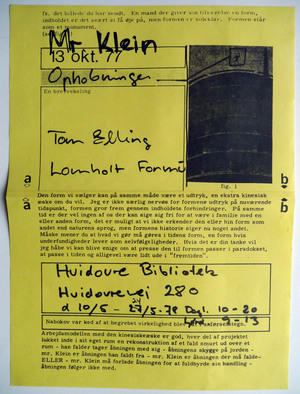 fx. det billede du har sendt. En mand der giver sin tilværelse en form,
indholdet er det svært at få øje på, men formen er solklar. Formen står
som et monument.
Mr Klein
13 okt. 77
Ophobninger
En brevveksling
Tom Elling
Lomholt Formu
a
b
fig. 1
a
b
Den form vi sælger kan på samme måde være et udtryk, en ekstra kinesisk
æske om du vil. Jeg er ikke særlig nervøs for formenes udtryk på nuværende
tidspunkt, formen gror frem gennem indholdets forhindringer. På samme
tid er det vel ingen af os der kan sige sig fri for at være i familie med en
eller anden form, det er muligt at vi ikke erkender den eller hin form som
andet end naturens sprog, men formens historie siger nu noget andet.
Måske mener du at hvad vi gør må gøres i tidens form, en form hvis
underfundigheder lever som selvfølgeligheder. Hvis det er din tanke vil
jeg håbe vi kan blive enige om at presse den til formen passer i paradokset,
at passe i tiden og alligevel være lidt ude i "fremtiden".
Hvidovre Bibliotek
Hvidovrevej 280
d 10/5 - 27/5-78 Dagl. 10-20
Nabokov var ked af at begrebet virkelighed blev
Arbejdsmodellen med den kinesiskæske er god, hver del af projektet
lukket inde i sit eget rum en rekonstruktion af et fald smurt ud over et
rum - han falder tager åbningen med sig - åbningens skygge på jorden -
mr. Klein er åbningen han faldt fra - mr. Klein er åbningen der må falde-
ELLER - mr. Klein må forlade åbningen for at fuldbyrde sin handling -
åbningen følger ikke med.